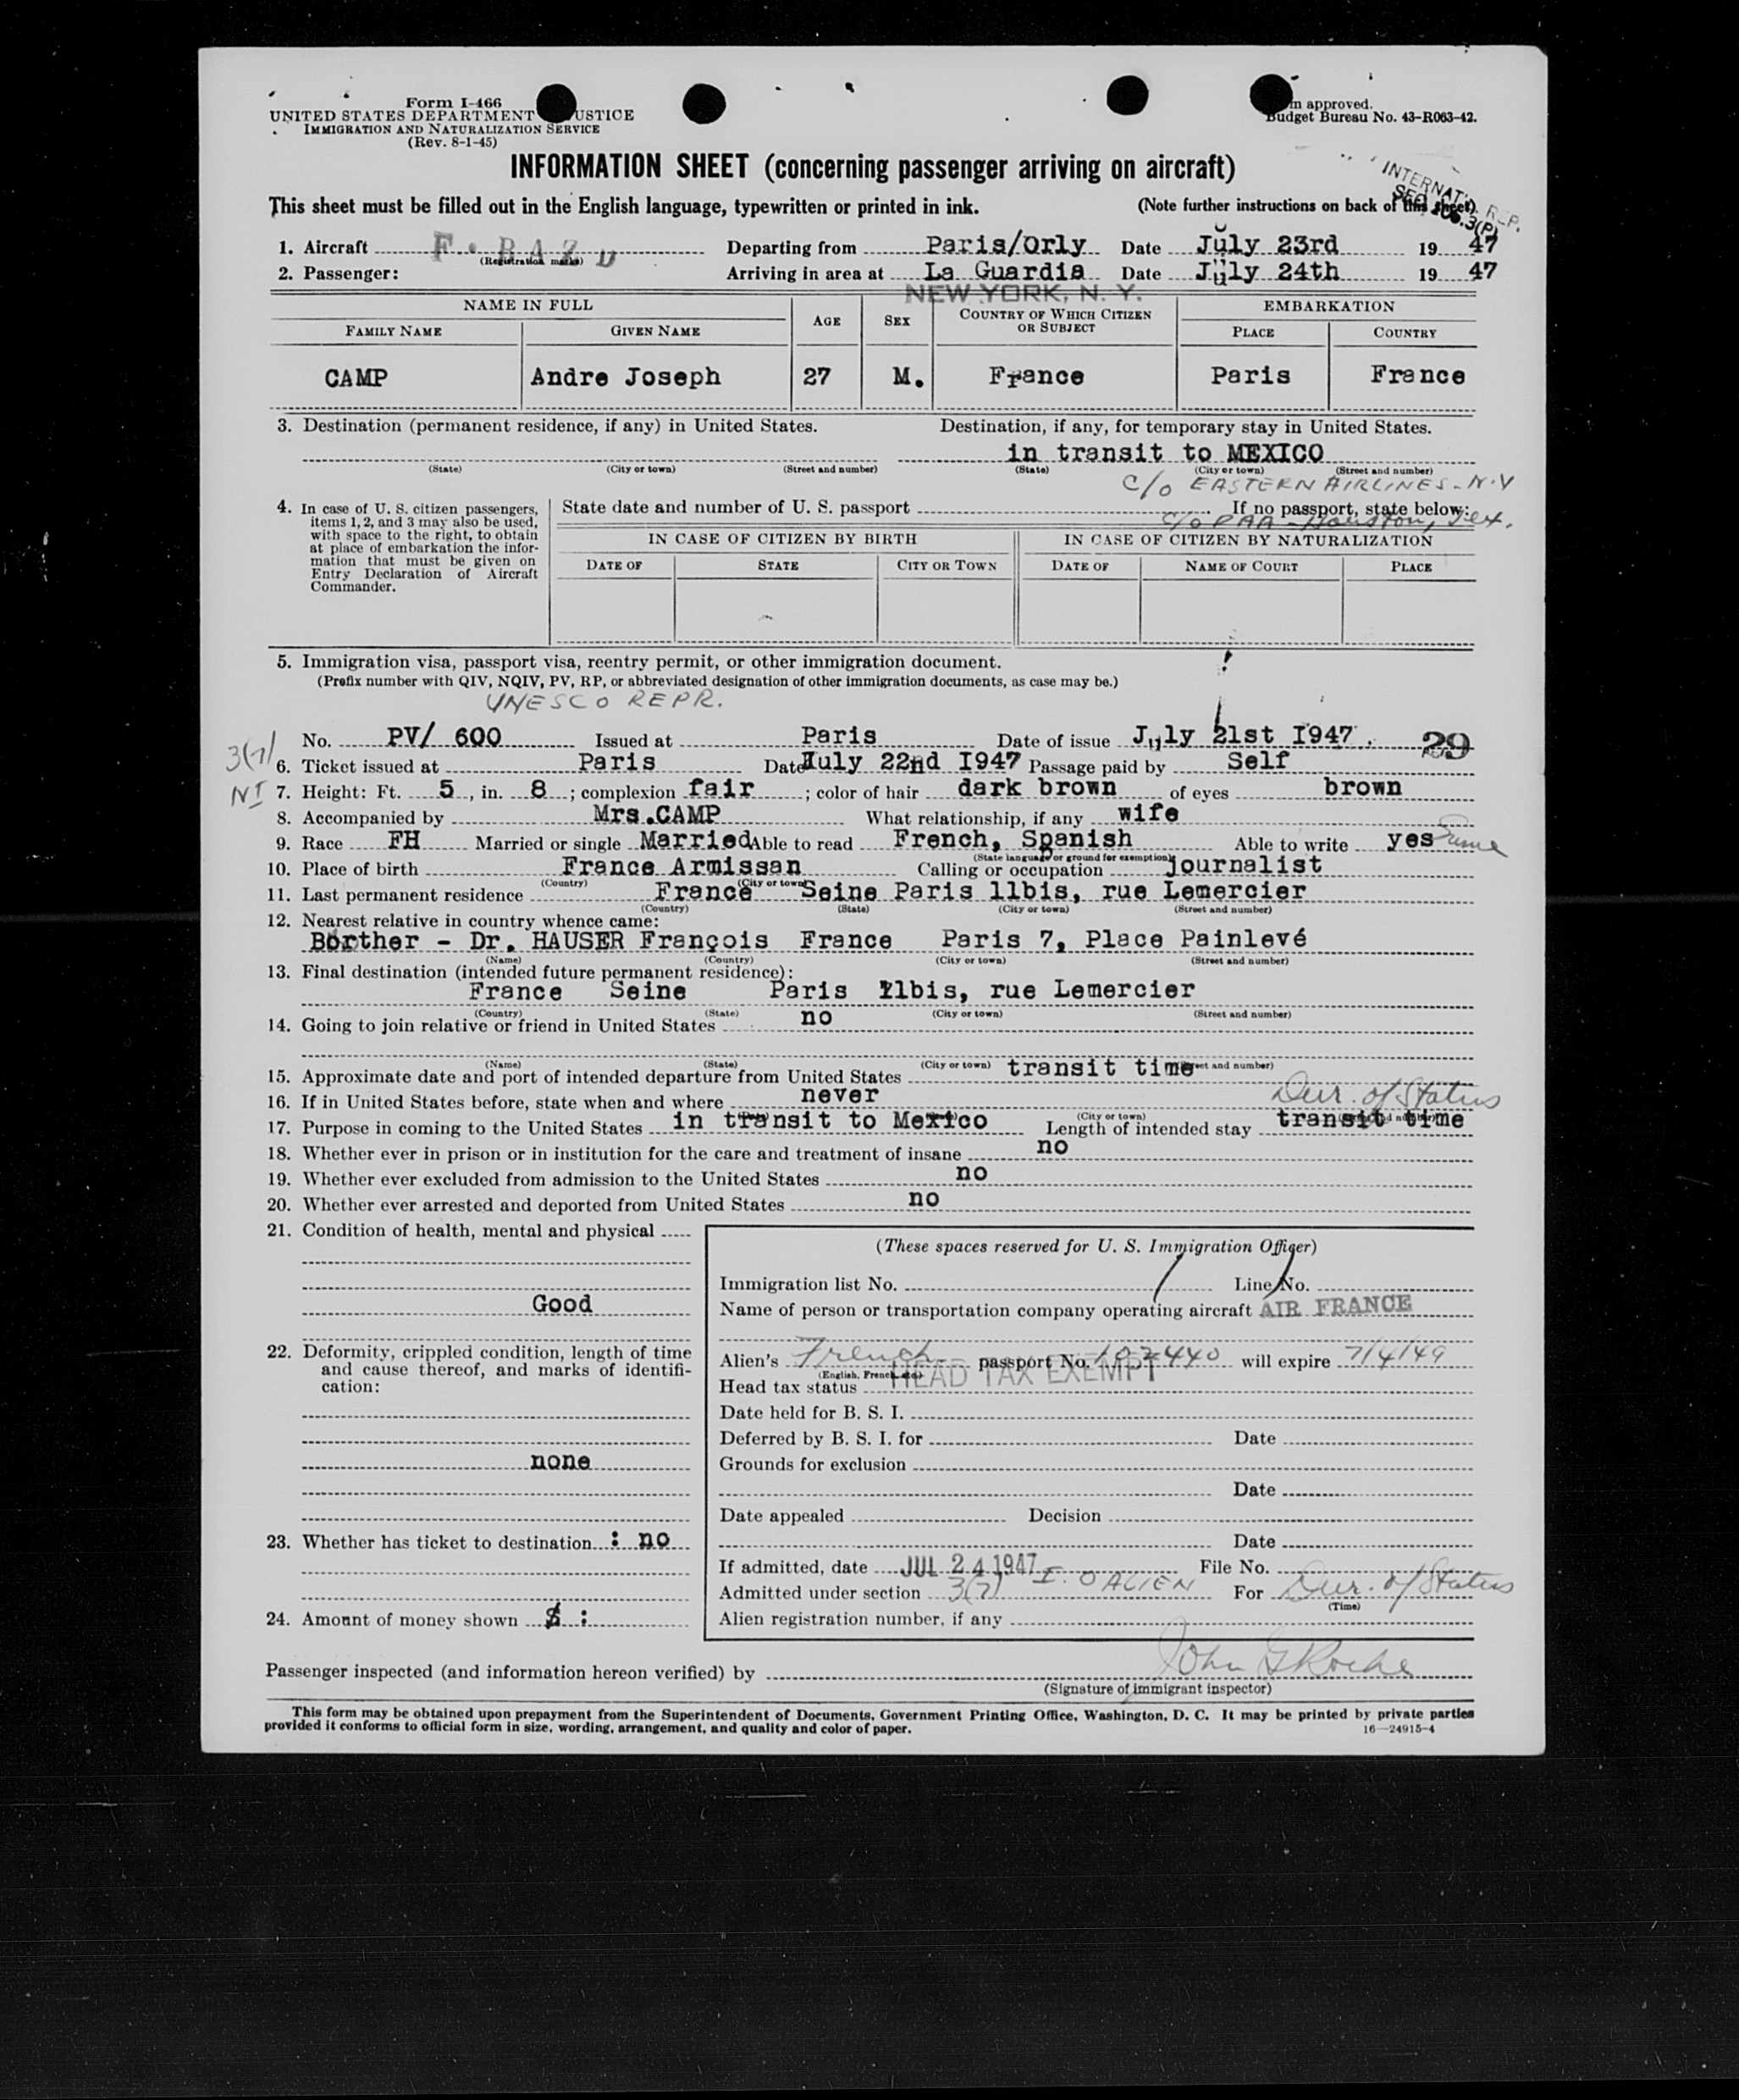 Form I-466
UNITED STATES DEPARTMENT USTICE
IMMIGRATION AND NATURALIZATION SERVICE
(Rev. 8-1-45)
m approved.
Budget Bureau No. 43-R063-42.
INFORMATION SHEET (concerning passenger arriving on aircraft)
INTERNAT'L REP.
SEC 3(P)
This sheet must be filled out in the English language, typewritten or printed in ink. (Note further instructions on back of this sheet)
1. Aircraft F. BAZ (Registration marks) Departing from Paris/Orly Date July 23rd 19 47
2. Passenger: Arriving in area at La Guardia Date July 24th 19 47
NEW YORK, N. Y.
NAME IN FULL AGE SEX COUNTRY OF WHICH CITIZEN OR SUBJECT EMBARKATION
FAMILY NAME GIVEN NAME PLACE COUNTRY
CAMP Andre Joseph 27 M. France Paris France
3. Destination (permanent residence, if any) in United States. Destination, if any, for temporary stay in United States.
in transit to MEXICO
(State) (City or town) (Street and number) (State) (City or town) (Street and number)
C/O EASTERN AIRLINES - N.Y
4. In case of U. S. citizen passengers, items 1, 2, and 3 may also be used, with space to the right, to obtain at place of embarkation the information that must be given on Entry Declaration of Aircraft Commander.
State date and number of U. S. passport If no passport, state below:
C/O PAA - Houston, Tex.
IN CASE OF CITIZEN BY BIRTH IN CASE OF CITIZEN BY NATURALIZATION
DATE OF STATE CITY OR TOWN DATE OF NAME OF COURT PLACE
5. Immigration visa, passport visa, reentry permit, or other immigration document.
(Prefix number with QIV, NQIV, PV, RP, or abbreviated designation of other immigration documents, as case may be.)
UNESCO REPR.
No. PV/ 600 Issued at Paris Date of issue July 21st I947. 29
3(7)
6. Ticket issued at Paris Date July 22nd I947 Passage paid by Self
NI
7. Height: Ft. 5, in. 8; complexion fair; color of hair dark brown of eyes brown
8. Accompanied by Mrs.CAMP What relationship, if any wife
9. Race FH Married or single Married Able to read French, Spanish Able to write yes Same
(State language or ground for exemption)
10. Place of birth France Armissan Calling or occupation journalist
(Country) (City or town)
11. Last permanent residence France Seine Paris llbis, rue Lemercier
(Country) (State) (City or town) (Street and number)
12. Nearest relative in country whence came:
Borther - Dr. HAUSER François France Paris 7, Place Painlevé
(Name) (Country) (City or town) (Street and number)
13. Final destination (intended future permanent residence):
France Seine Paris llbis, rue Lemercier
(Country) (State) (City or town) (Street and number)
14. Going to join relative or friend in United States no
(Name) (State) (City or town) (Street and number)
15. Approximate date and port of intended departure from United States transit time
16. If in United States before, state when and where never
Dur. of Status
(City or town)
17. Purpose in coming to the United States in transit to Mexico Length of intended stay transit time
18. Whether ever in prison or in institution for the care and treatment of insane no
19. Whether ever excluded from admission to the United States no
20. Whether ever arrested and deported from United States no
21. Condition of health, mental and physical
Good
22. Deformity, crippled condition, length of time and cause thereof, and marks of identification:
none
23. Whether has ticket to destination : no
24. Amount of money shown $ :
(These spaces reserved for U. S. Immigration Officer)
Immigration list No. Line No.
Name of person or transportation company operating aircraft AIR FRANCE
Alien's French passport No. 102440 will expire 7/4/49
(English, French, etc.)
Head tax status HEAD TAX EXEMPT
Date held for B. S. I.
Deferred by B. S. I. for Date
Grounds for exclusion
Date
Date appealed Decision
Date
If admitted, date JUL 24 1947 File No.
I. O ALIEN
Admitted under section 3(7) For Dur. of Status
(Time)
Alien registration number, if any
Passenger inspected (and information hereon verified) by John G Roche
(Signature of immigrant inspector)
This form may be obtained upon prepayment from the Superintendent of Documents, Government Printing Office, Washington, D. C. It may be printed by private parties
provided it conforms to official form in size, wording, arrangement, and quality and color of paper. 16—24915-4